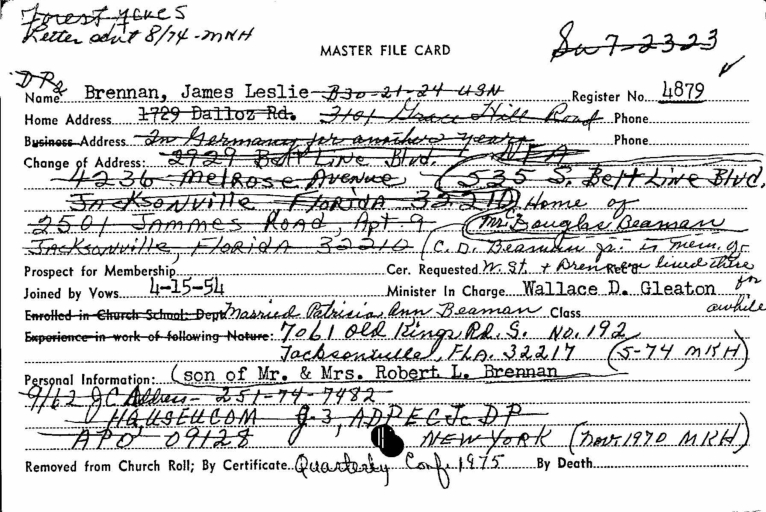 Forest Acres
Letter sent 8/74 - MKH
MASTER FILE CARD
Su 7-2323
DP2
Name Brennan, James Leslie B30-21-24 USN Register No. 4879
Home Address 1729 Dalloz Rd. 3101 Grace Hill Road Phone
Business Address In Germany for another year Phone
Change of Address: 2729 Belt Line Blvd. NFA
4236 Melrose Avenue (535 S. Belt Line Blvd.
Jacksonville Florida 32210 Home of
2501 Jammes Road, Apt. 9 Mr. Douglas Beaman
Jacksonville, Florida 32210 (C. D. Beaman Jr. is mem. of
Prospect for Membership Cer. Requested W. St. + Brennan lived there
for
Joined by Vows 4-15-54 Minister In Charge Wallace D. Gleaton
awhile
Enrolled in Church School: Dept Married Patricia Ann Beaman Class
Experience in work of following Nature: 7061 Old Kings Rd. S. No. 192
Jacksonville, Fla. 32217 (5-74 MKH)
Personal Information: (son of Mr. & Mrs. Robert L. Brennan
9/62 JC Address - 251-74-7482
HQ USEUCOM J-3, ADPEC Jc DP
APO 09128 NEW YORK (Nov. 1970 MKH)
Removed from Church Roll; By Certificate Quarterly Conf. 1975 By Death